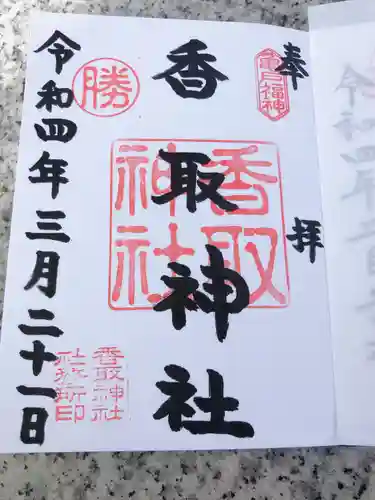 奉拝
亀戸福神
香取神社
香取神社
勝
令和四年三月二十一日
香取神社
社務所印